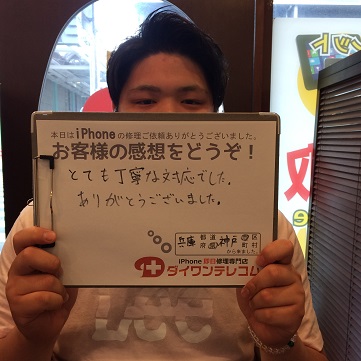 本日はiPhoneの修理ご依頼ありがとうございました。
お客様の感想をどうぞ！
とても丁寧な対応でした。
ありがとうございました。
兵庫 都道府県 神戸 市区町村
から来ました。
iPhone 即日修理専門店
ダイワンテレコム